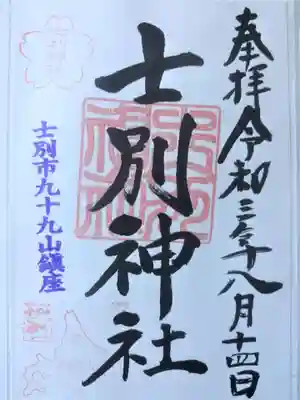 奉拝令和三年八月十四日
士別神社
士別市九十九山鎮座